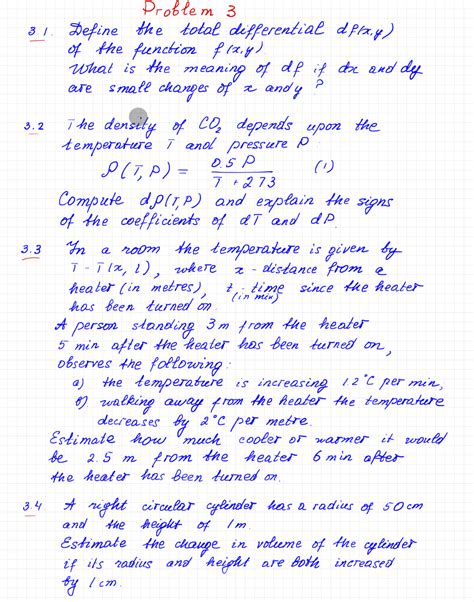 Problem 3
3.1. Define the total differential df(x,y)
of the function f(x,y)
What is the meaning of df if dx and dy
are small changes of x and y ?
3.2 The density of CO₂ depends upon the
temperature T and pressure P
ρ(T,P) = 0.5 P / T + 273 (1)
Compute dρ(T,P) and explain the signs
of the coefficients of dT and dP
3.3 In a room the temperature is given by
T - T(x, t), where x - distance from a
heater (in metres), t - time since the heater
(in min)
has been turned on.
A person standing 3 m from the heater
5 min after the heater has been turned on,
observes the following:
a) the temperature is increasing 1.2°C per min,
b) walking away from the heater the temperature
decreases by 2°C per metre.
Estimate how much cooler or warmer it would
be 2.5 m from the heater 6 min after
the heater has been turned on.
3.4 A right circular cylinder has a radius of 50 cm
and the height of 1 m
Estimate the change in volume of the cylinder
if its radius and height are both increased
by 1 cm.